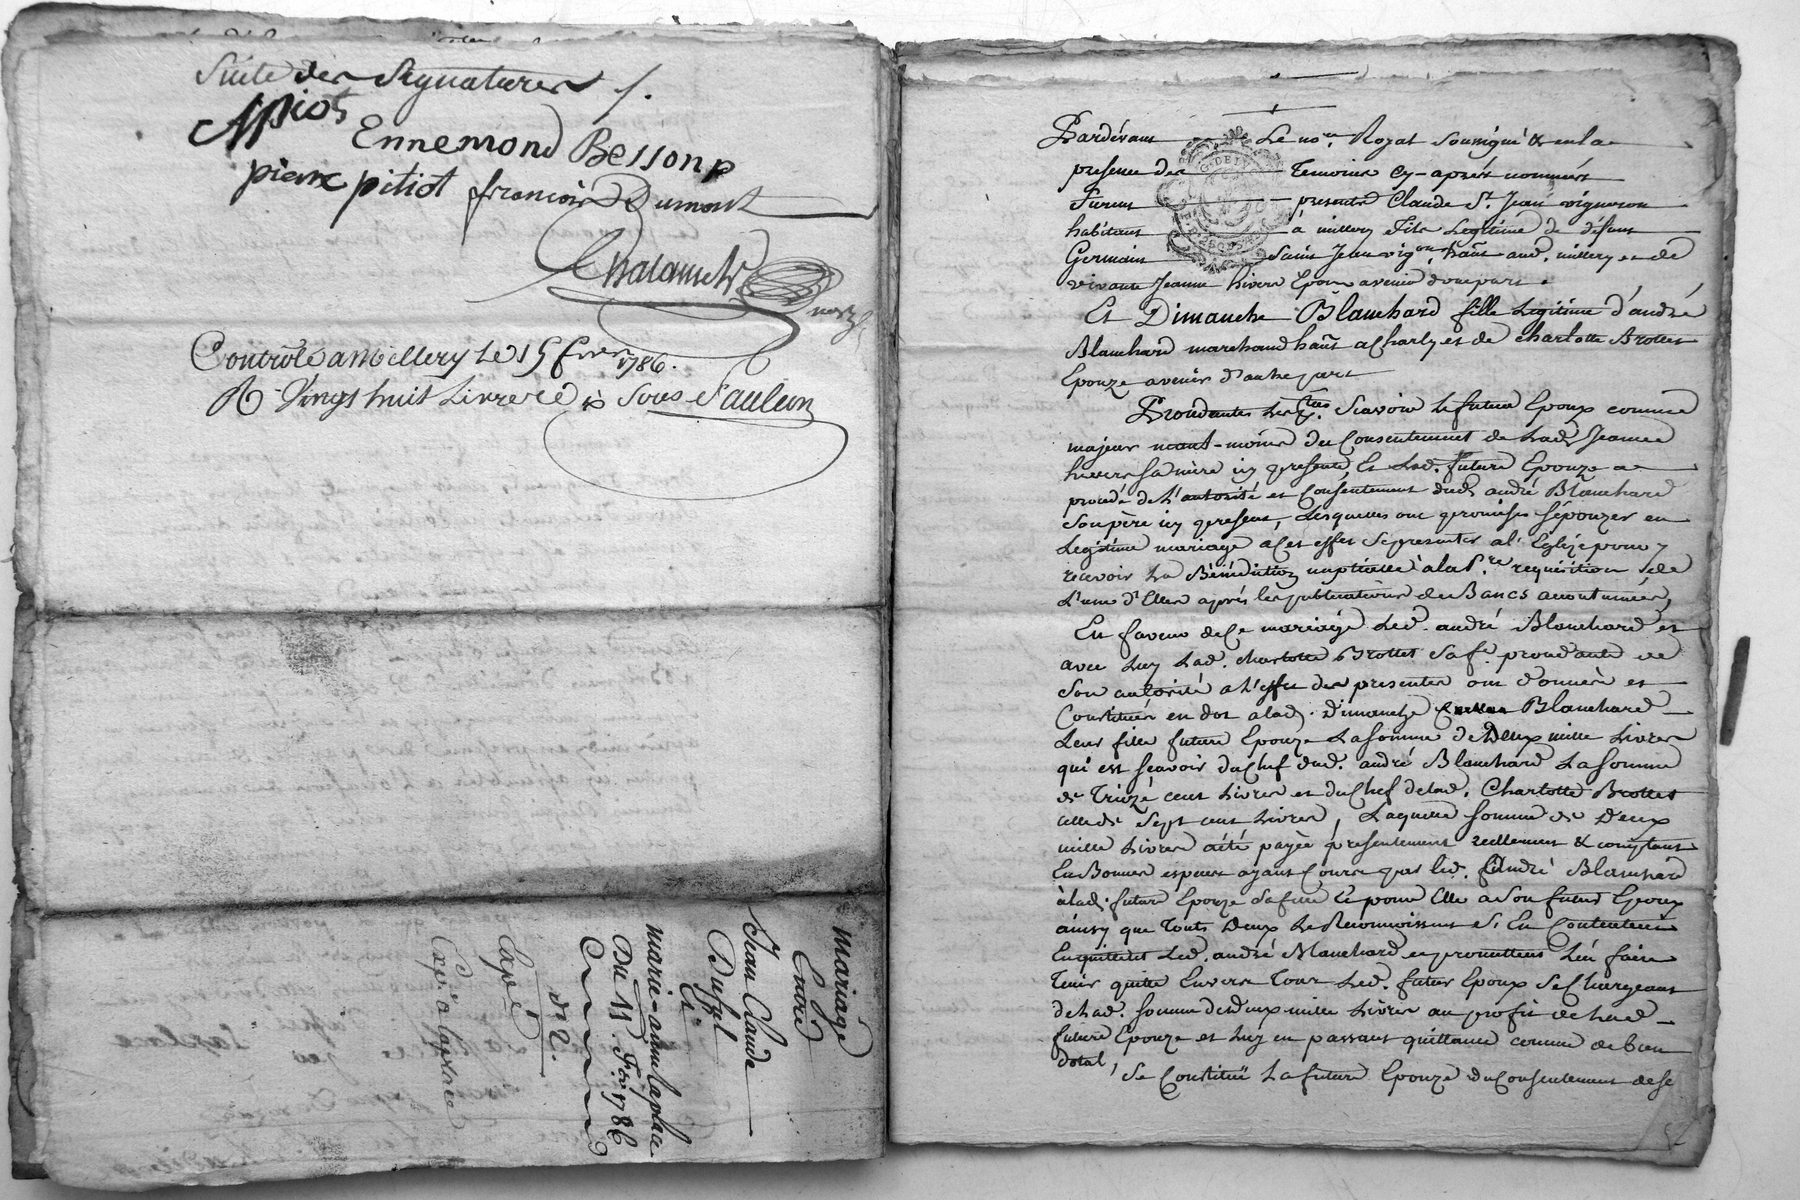 Suite des Signatures /.
Appiot
Ennemond Besson p
pierre pitiot francois Dumont
Chalamet
nore
Controlé a Millery le 15 fevrier 1786.
R Vingt huit Livres dix Sous Saulein
mariage
Entre
Jean Claude
Duffut
Et
marie-anne laplace
Du 11. fer. 1786
dt 2.
Expé
Expé à laplace
Pardevant Le nore. Royal soussigné & en la
presence des Temoins cy-après nommés
Furent presents Claude St. Jean vigneron
habitant à millery fils Legitime de défunt
Germain Saint Jean vigon. hant. aud. millery et de
vivante Jeanne hivers Epoux avenir d'une part.
Et Dimanche Blanchard fille Legitime d'andré
Blanchard marchand hant a Charly et de charlotte Brottet
Epouze avenir d'autre part
Procedantes Les pties. Scavoir le futur Epoux comme
majeur neant-moins du Consentement de lade Jeanne
hivers sa mère icy presente, Et Lad. future Epouze
procéde de L'autorité et Consentement dud. andré Blanchard
son père icy present, Lesquelles ont promises s'épouzer en
Legitime mariage a Cet effet se presenter a l'Eglize pour y
recevoir La Bénédiction nuptialle à la pre. requisition de
L'une d'Elles après les publications des Bancs accoutumées,
En faveur de Ce mariage Led. andré Blanchard et
avec Luy Lad. charlotte Brottet sa fe. procedante de
Son autorité a L'effet des presentes ont donnés et
Constitués en dot a lad. Dimanche Blanchard
Leur fille future Epouze La somme de Deux mille Livres
qui est scavoir du Chef dud. andré Blanchard La somme
de Treize cent Livres et du Chef de lad. Charlotte Brottet
celle de Sept cent Livres, Laquelle somme de Deux
mille Livres a été payée presentement reellement & comptant
En Bonnes especes ayant Cours par led. André Blanchard
à lad. future Epouze sa fille et pour Elle a son futur Epoux
ainsy que Touts Deux Le Reconnoissent S'En Contentent
En quittent Led. andré Blanchard et promettent L'en faire
Tenir quitte Envers Tous Led. futur Epoux se Chargeant
de Lad. somme de Deux mille Livres au profit de Lad
future Epouze et Luy en passant quittance comme de bien
dotal,
Se Constitue La future Epouze du Consentement de se